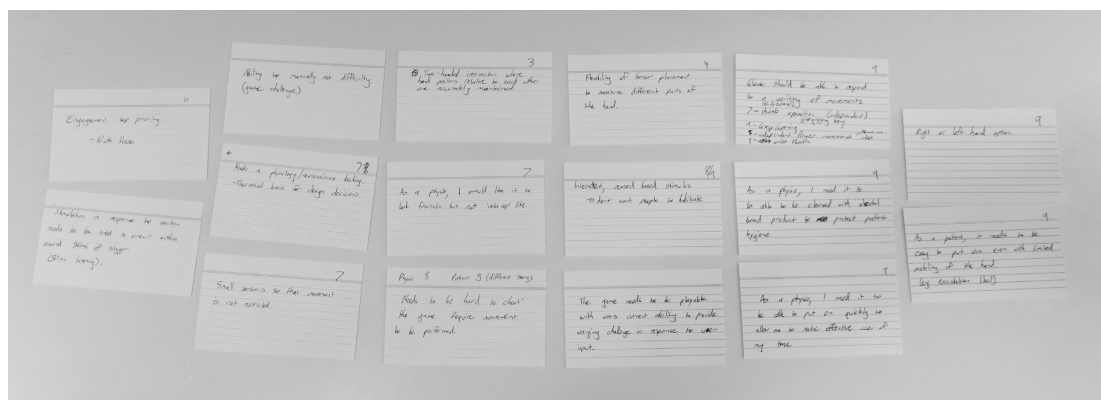 Engagement top priority
- Nick
Stimulation in response to action
needs to be linked to event within
around 50ms of trigger
(50ms latency).
Ability to manually set difficulty
(game challenge)
7
Needs a physiology/neuroscience backing.
- Theoretical basis for design decisions
7
Small sensors so that movement
is not restricted.
3
Two-handed interaction where
hand positions relative to each other
are accurately maintained.
7
As a physio, I would like it to
look futuristic but not 'robocop' like
Physio 8 Patient 3 (different story)
Needs to be hard to 'cheat'
the game. Require movement
to be performed.
4
Flexibility of sensor placement
to measure different parts of
the hand.
8/9
Interest, reward based stimulus
→ don't want people to
The game needs to be playable
with users current ability to provide
varying challenge in response to user
input.
9
Glove should be able to respond
to a variety of movements
7 - thumb opposition (independent)
- Grasp/opening
- independent finger movement
- wrist
9
As a physio, I need it to
be able to be cleaned with alcohol
based product to protect patient
hygiene
As a physio, I need it to
be able to put on quickly to
allow me to make effective use of
my time
9
Right or left hand option
9
As a patient, it needs to be
easy to put on even with limited
mobility of the hand.